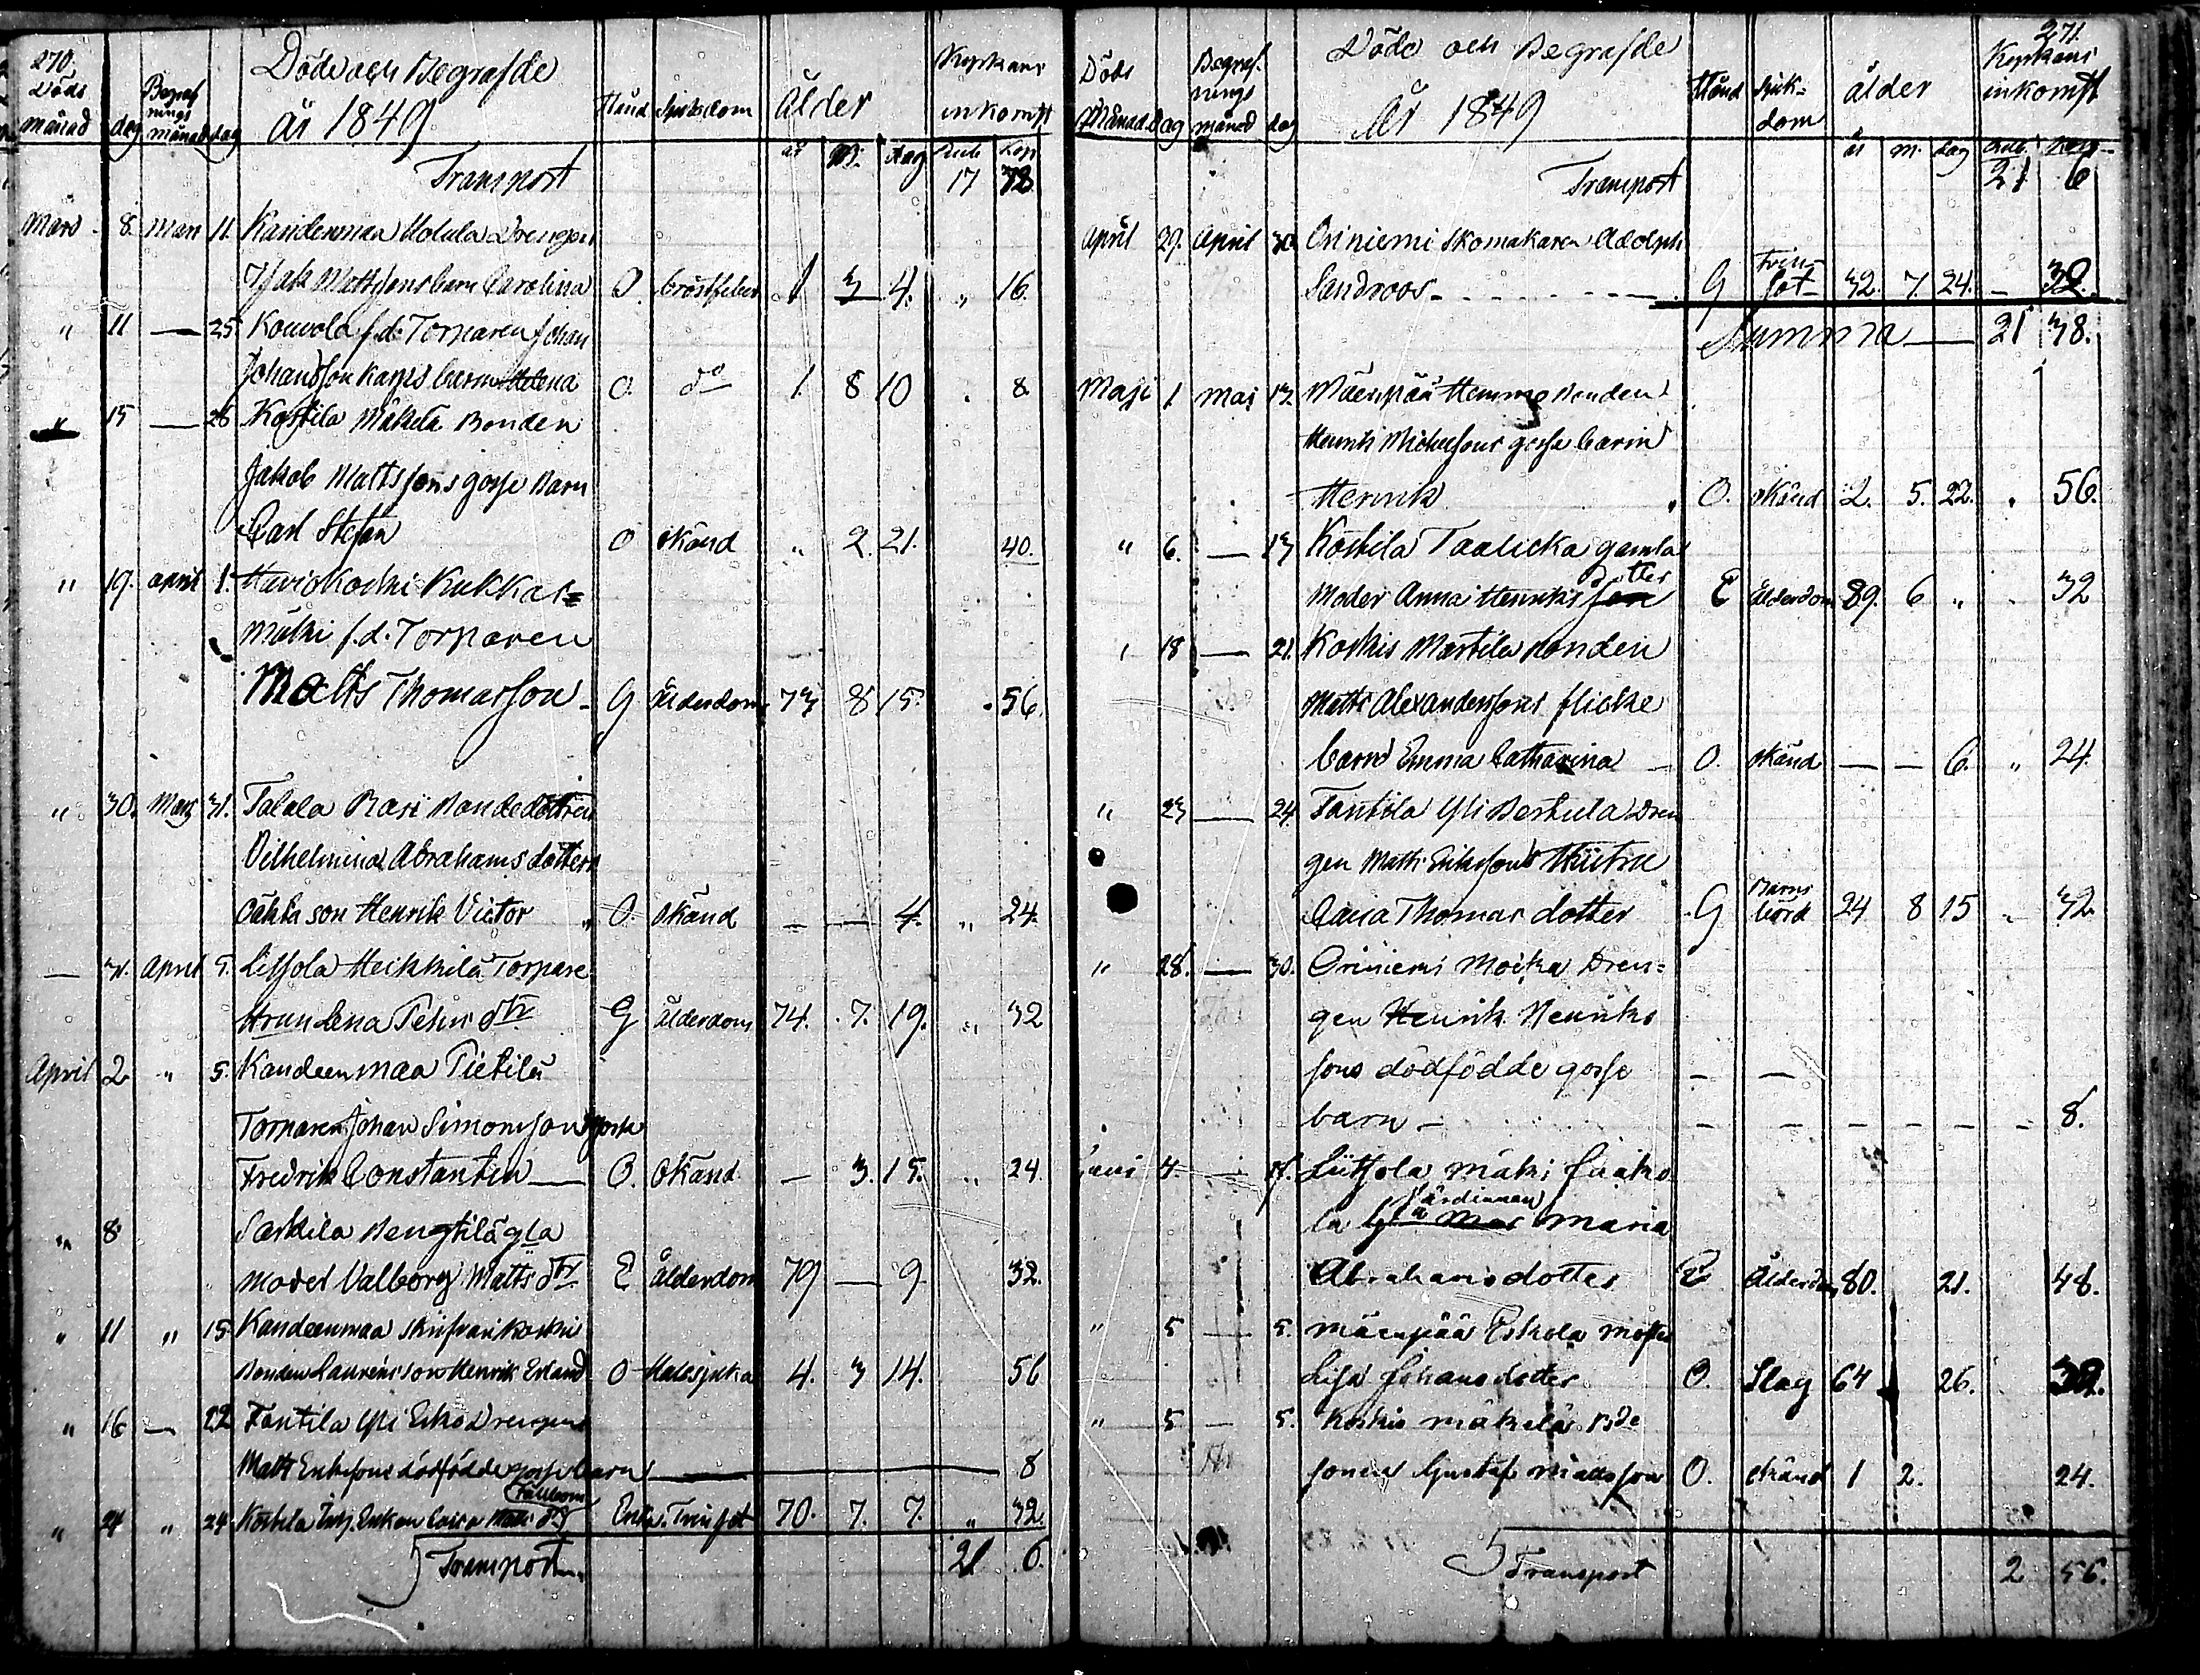 270.
Döde och Begrafde
år 1849
Döds
månad dag
Begraf
nings
månad dag
Stånd Sjukdom Ålder
Kyrkans
inkomst
år m. dag Rub Kop
Transport 17 78
Mars 8. Mars 11. Kandenmaa Uotula Drengen
Isak Mattssons barn Carolina O. bröstfeber 1 3 4. " 16.
" 11 — 25 Kouvola f.d. Torparen Johan
Johansson Karps barn Helena O. do 1. 8 10 . 8.
" 15 — 26 Kostila Mäkelä Bonden
Jakob Mattssons gosse Barn
Carl Stefan O okänd " 2. 21. 40.
" 19. april 1. Haviokoski Kukkar=
mäki f.d. Torparen
Matts Thomasson G ålderdom 73 8 15. . 56.
" 30. Mars 31. Talala Rasi Bondedottren
Vilhelmina Abrahamsdotters
oäkta son Henrik Victor O. okänd — — 4. " 24.
— 31. April 5. Lissola Heikkilä Torpare
Hrun Lena Pehrs dtr G ålderdom 74. 7. 19. " 32
April 2 " 5. Kandeenmaa Pietilä
Torparen Johan Simonsson gosse
Fredrik Constantin — O. okänd — 3. 15. " 24.
" 8 Sarkila Bengtilä gla
moder Valborg Matts dtr E ålderdom 79 — 9 32.
" 11 " 15 Kandeenmaa koski
Bonden Laurens son Henrik Erland O Halssjuka 4. 3 14. 56
" 16 — 22 Tantila Yli Erko Drengens
Matts Erikssons dödfödde gosse barn — 8
" 24 " 24 Kostila Enkan Caisa Matts dtr Enka. Trinsot 70. 7. 7. " 32.
Transport 21 6.
271.
Döde och Begrafde
År 1849
Döds
Månad dag
Begraf-
nings
månad dag
Stånd Sjuk-
dom
ålder
Kyrkans
inkomst
år m. dag Rub Kop
Transport 21 6
April 29. April 30. Oriniemi Skomakaren Adolph
Sandroos - - - G Trin-
sot 32. 7. 24. — 32.
Summa — 21 38.
Maji 1. Maj 13 Mäenpää Hemmo Bonden
Henrik Michelssons gosse barn
Henrik O. okänd 2. 5. 22. . 56.
" 6. — 13 Kostila Taalicka gamla
Moder Anna Henriks dotter E ålderdom 89. 6 " . 32
" 18 — 21. Koskis Martila bonden
Matts Alexanderssons flicke
barn Emma Catharina — O. okänd — — 6. " 24.
" 23 — 24. Tantila Yli Bertula Dren
gen Matts Erikssons Hustru
Caisa Thomas dotter G Barns
börd 24 8 15 " 32.
" 28. — 30. Oriniemi Moika Dren=
gen Henrik Henriks
sons dödfödde gosse — —
barn — — — — — — — 8.
Juni 4. — Liitsola mäki Jaako
la Värdinnan Maria
Abrahamsdotter E Ålderdom 80. 21. 48.
" 5 — 5. Mäenpää Eskola
Lisa Johansdotter O. Slag 64 26. 32.
" 5 — 5. Koskis mäkelä Bde
sonen Gustaf Mattsson O. okänd 1 2. 24.
Transport 2 56.